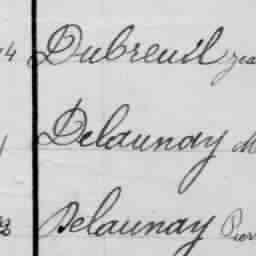 4 Dubreuil Jea
Delaunay M
Delaunay Pier